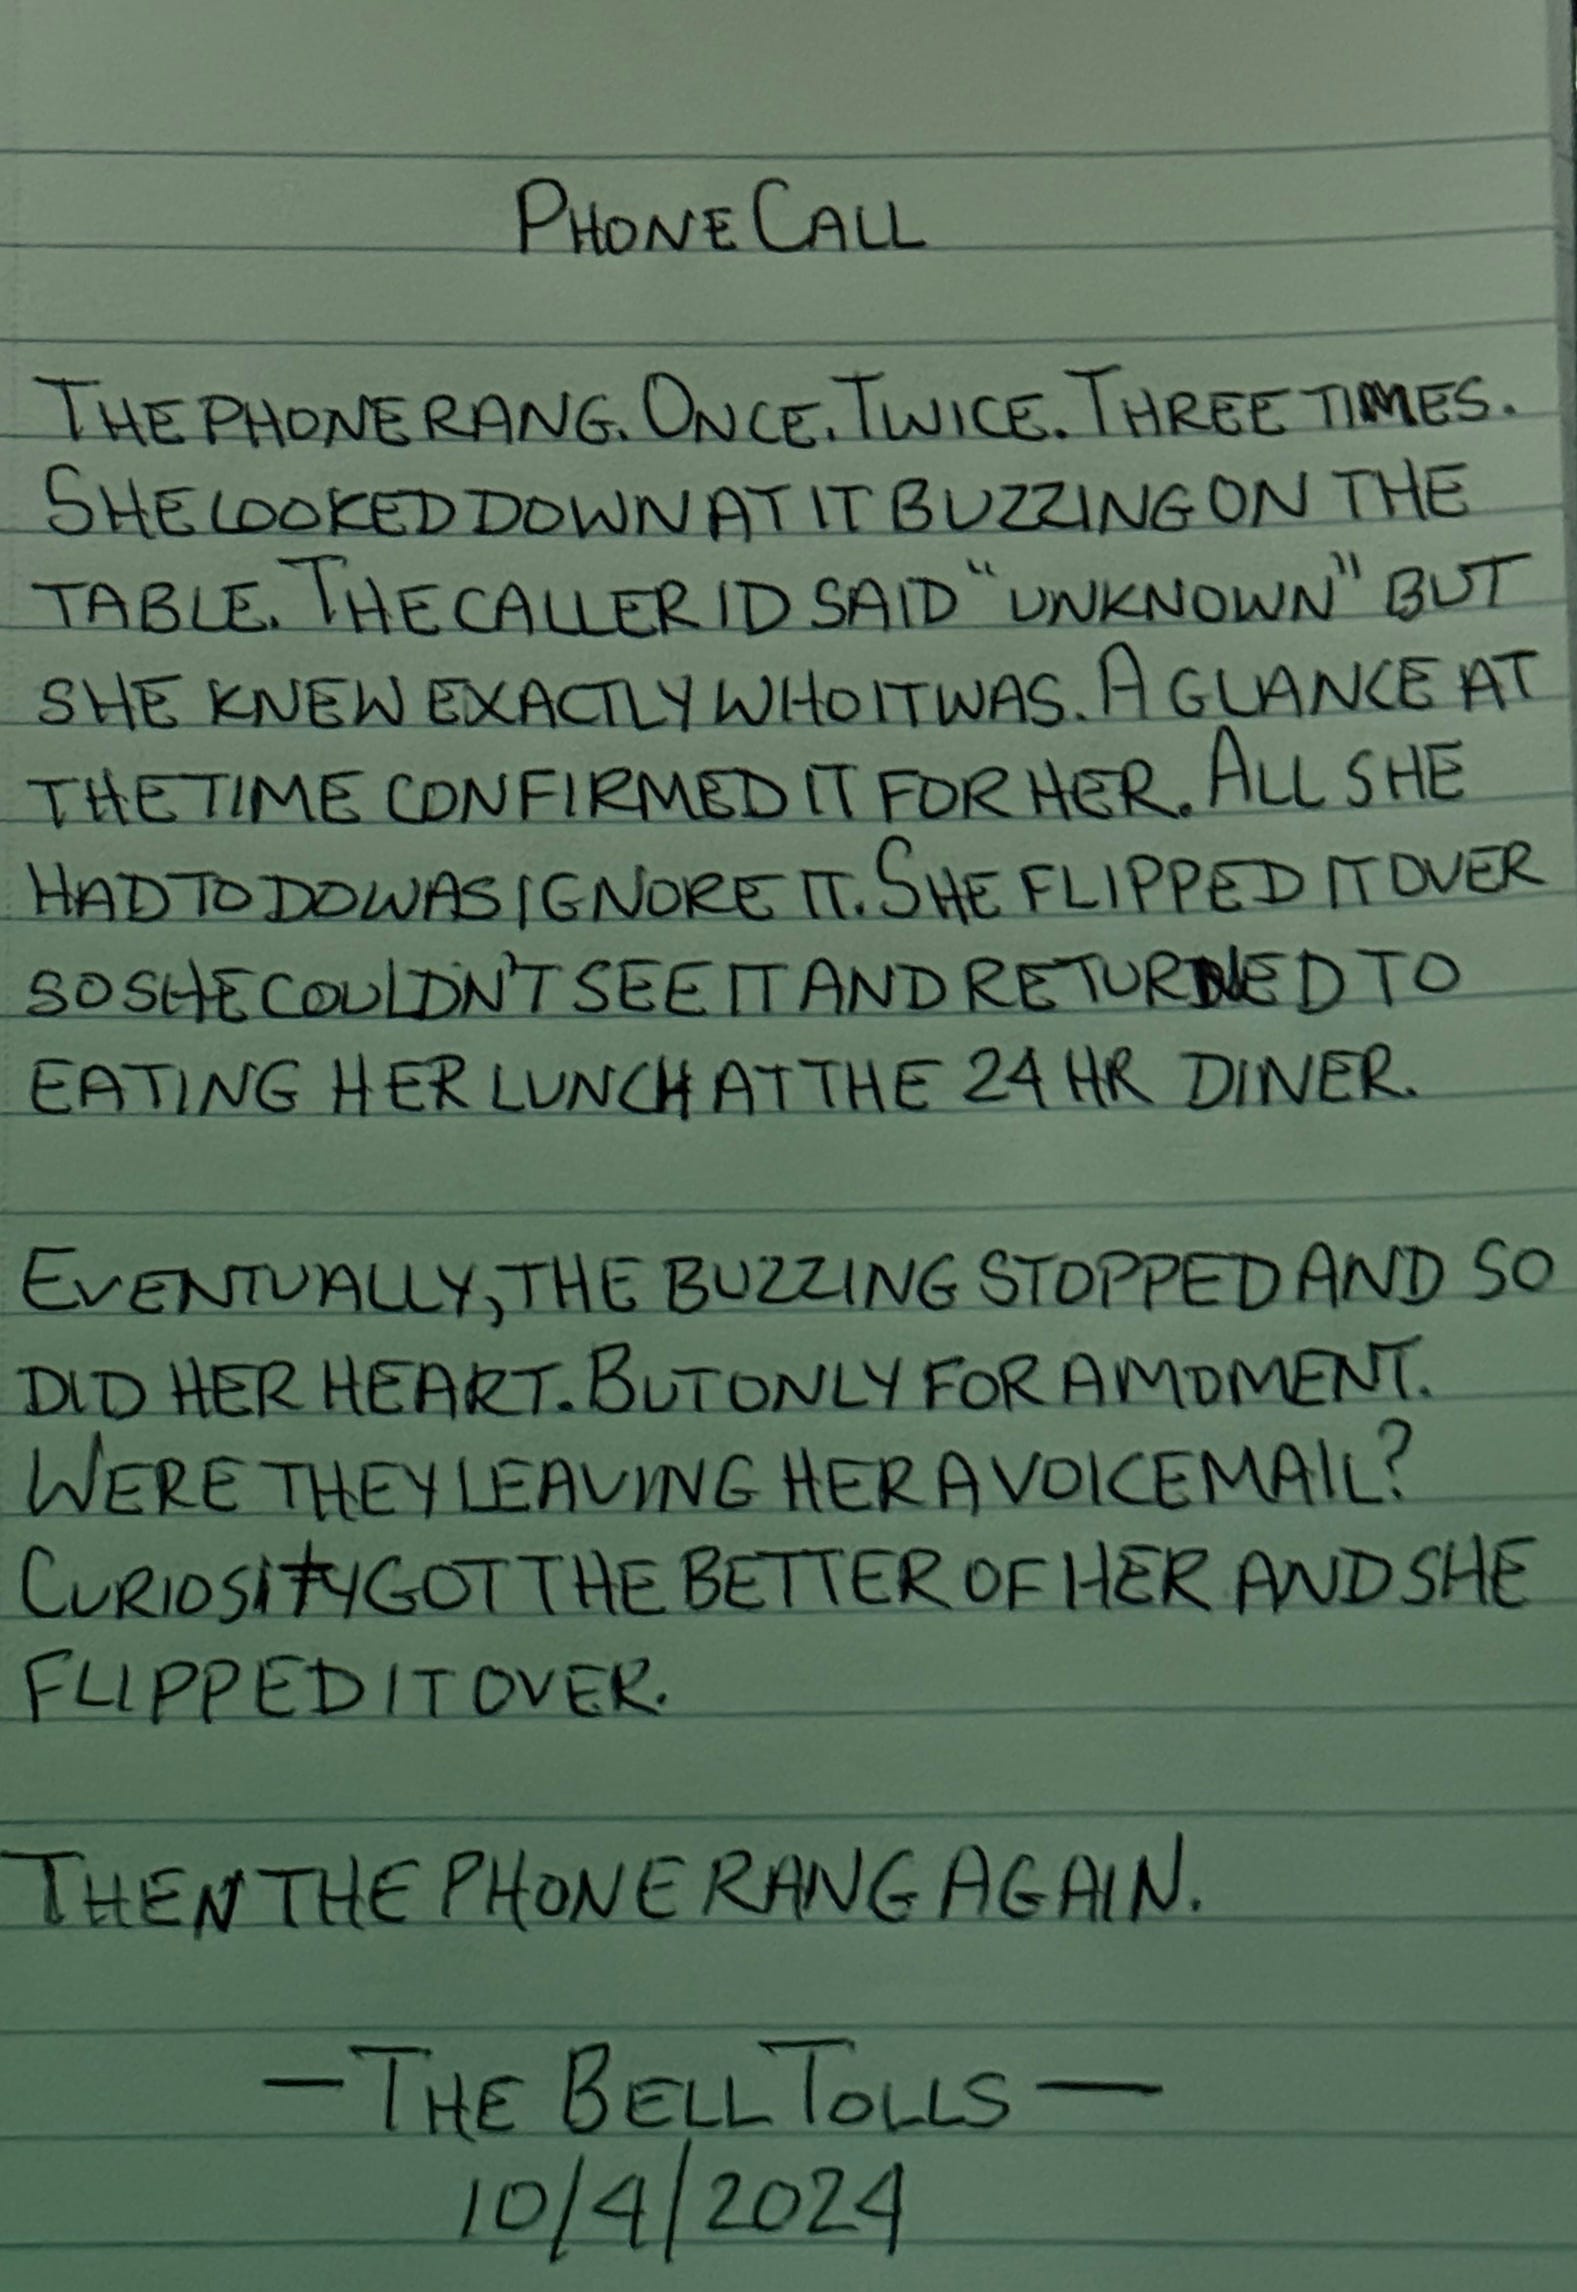 PHONE CALL
THE PHONE RANG. ONCE. TWICE. THREE TIMES.
SHE LOOKED DOWN AT IT BUZZING ON THE
TABLE. THE CALLER ID SAID "UNKNOWN" BUT
SHE KNEW EXACTLY WHO IT WAS. A GLANCE AT
THE TIME CONFIRMED IT FOR HER. ALL SHE
HAD TO DO WAS IGNORE IT. SHE FLIPPED IT OVER
SO SHE COULDN'T SEE IT AND RETURNED TO
EATING HER LUNCH AT THE 24 HR DINER.
EVENTUALLY, THE BUZZING STOPPED AND SO
DID HER HEART. BUT ONLY FOR A MOMENT.
WERE THEY LEAVING HER A VOICEMAIL?
CURIOSITY GOT THE BETTER OF HER AND SHE
FLIPPED IT OVER.
THEN THE PHONE RANG AGAIN.
— THE BELL TOLLS —
10/4/2024